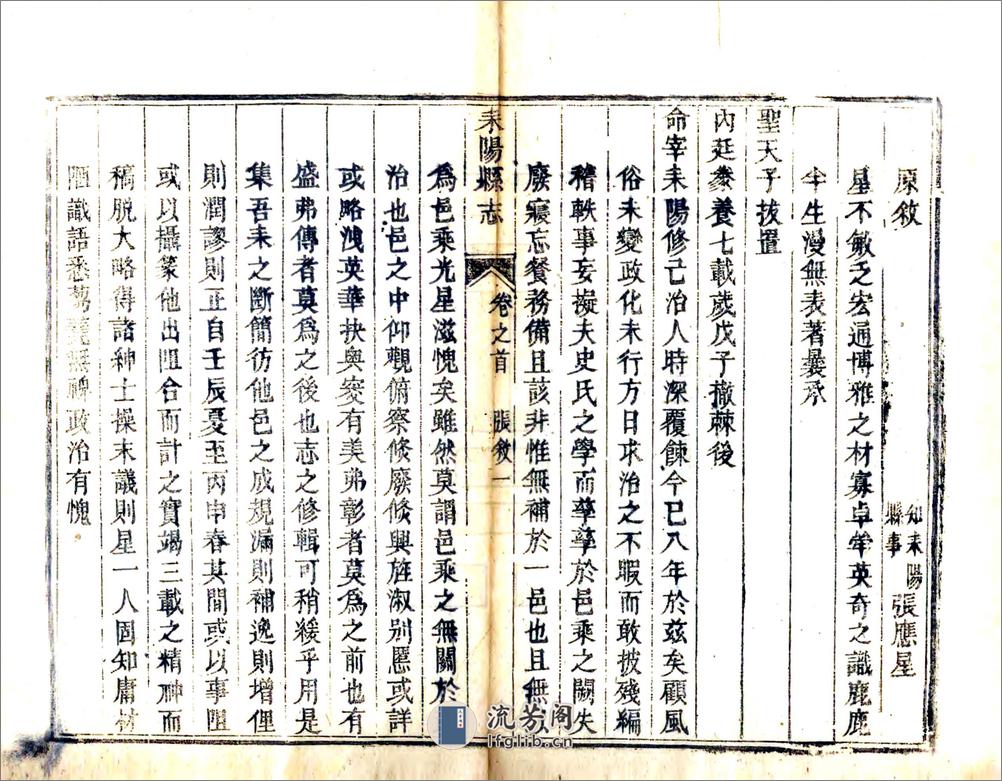 原敘
知耒陽縣事張應星
星不敏乏宏通博雅之材寡卓犖英奇之識鹿鹿
半生漫無表著曩承
聖天子拔置
內廷豢養七載歲戊子撤棘後
命宰耒陽修己治人時深覆餗今已八年於茲矣顧風
俗未變政化未行方日求治之不暇而敢披殘編
稽軼事妄擬夫史氏之學而孳孳於邑乘之闕失
廢寢忘餐務備且該非惟無補於一邑也且無
耒陽縣志 卷之首 張敘 一
爲邑乘光星滋愧矣雖然莫謂邑乘之無關於
治也邑之中仰觀俯察修廢倏興旌淑别慝或詳
或略洩英華抉奧窔有美弗彰者莫爲之前也有
盛弗傳者莫爲之後也志之修輯可稍緩乎用是
集吾耒之斷簡彷他邑之成規漏則補逸則增俚
則潤謬則正自壬辰夏至丙申春其間或以事阻
或以攝篆他出阻合而計之實竭三載之精神而
稿脱大略得諸紳士操末議則星一人固知庸材
陋識語悉蕪穢無裨政治有愧
流芳阁
lfglib.cn